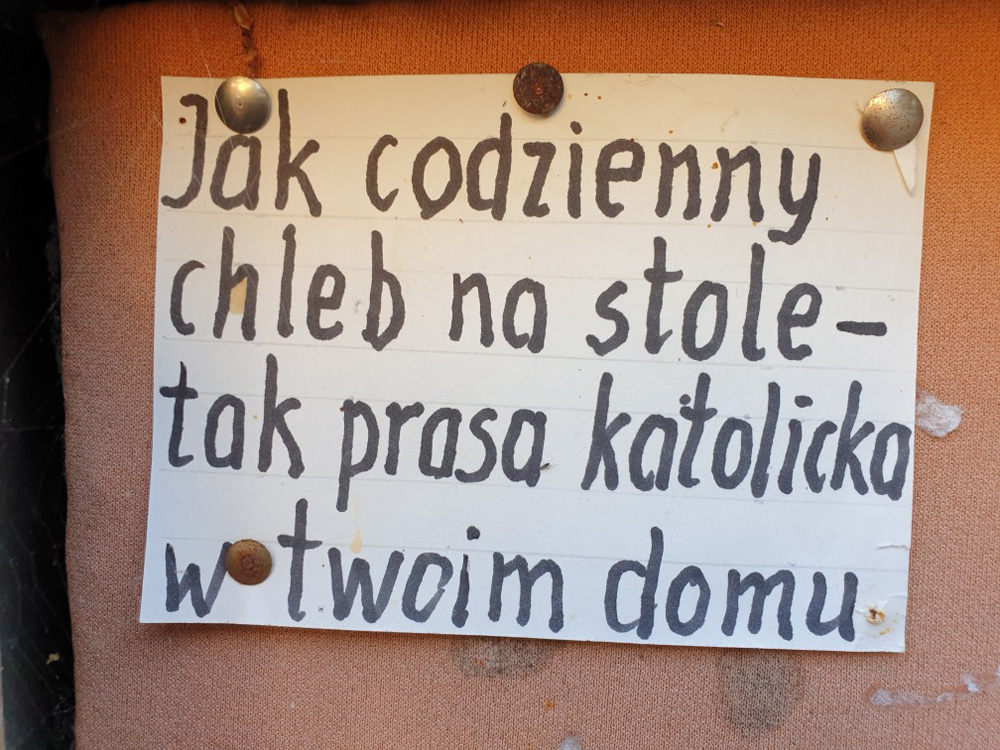 Jak codzienny
chleb na stole –
tak prasa katolicka
w twoim domu